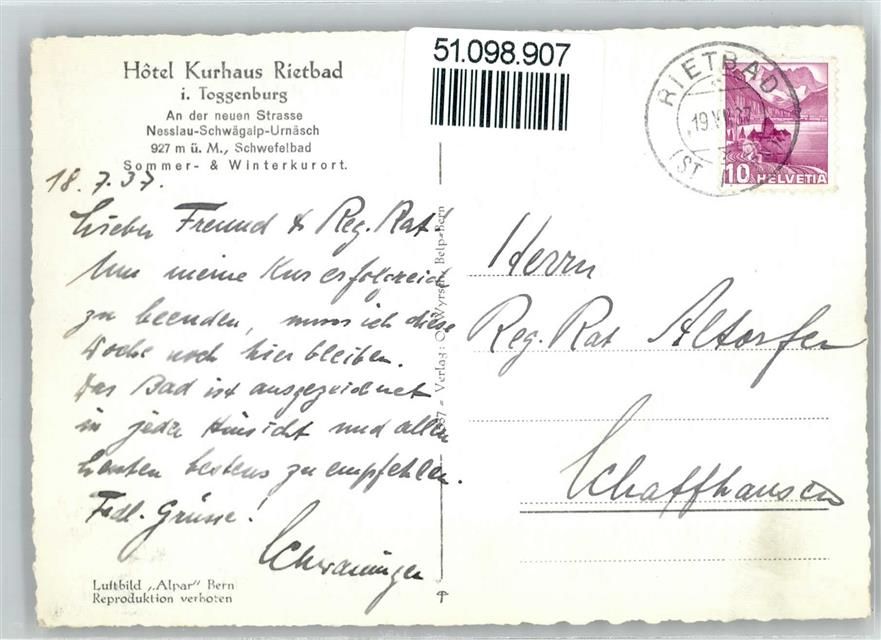 51.098.907
Hôtel Kurhaus Rietbad
i. Toggenburg
An der neuen Strasse
Nesslau-Schwägalp-Urnäsch
927 m ü. M., Schwefelbad
Sommer- & Winterkurort.
18.7.37.
Lieber Freund & Reg. Rat!
Um meine Kur erfolgreich
zu beenden, muss ich diese
Woche noch hier bleiben.
Das Bad ist ausgezeichnet
in jeder Hinsicht und allen
Leuten bestens zu empfehlen.
Frdl. Grüsse!
Schwaninger
Luftbild „Alpar" Bern
Reproduktion verboten
Verlag: O. Wyrsch, Belp-Bern
RIETBAD
10 HELVETIA
Herrn
Reg. Rat Altorfer
Schaffhausen